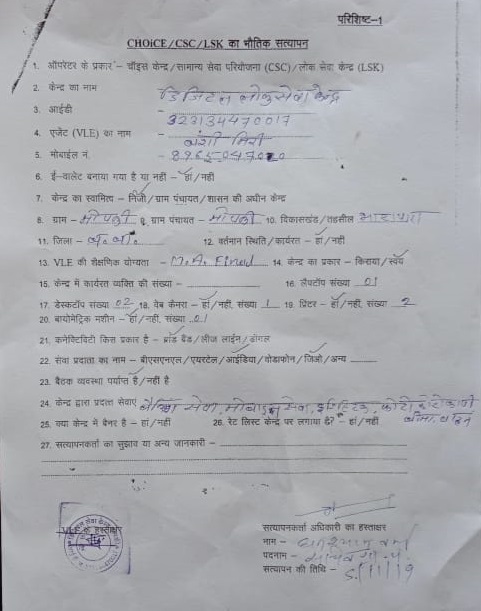 परिशिष्ट-1
CHOiCE/CSC/LSK का भौतिक सत्यापन
1. ऑपरेटर के प्रकार - चॉइस केन्द्र/सामान्य सेवा परियोजना (CSC)/लोक सेवा केन्द्र (LSK)
2. केन्द्र का नाम डिजिटल लोकसेवा केन्द्र
3. आईडी - 323134470017
4. एजेंट (VLE) का नाम - बंशी मिरी
5. मोबाईल नं. -
6. ई-वालेट बनाया गया है या नहीं - हां/नहीं
7. केन्द्र का स्वामित्व - निजी/ग्राम पंचायत/शासन की अधीन केन्द्र
8. ग्राम - मोपली 9. ग्राम पंचायत - मोपली 10. विकासखंड/तहसील भाटापारा
11. जिला - ब.बा. 12. वर्तमान स्थिति/कार्यरत - हां/नहीं
13. VLE की शैक्षणिक योग्यता - M.A. Final 14. केन्द्र का प्रकार - किराया/स्वंय
15. केन्द्र में कार्यरत व्यक्ति की संख्या - 16. लैपटॉप संख्या 01
17. डेस्कटॉप संख्या 02 18. वेब कैमरा - हां/नहीं, संख्या 1 19. प्रिंटर - हां/नहीं, संख्या 2
20. बायोमेट्रिक मशीन - हां/नहीं, संख्या 01
21. कनेक्टिविटी किस प्रकार है - ब्रांड बैंड/लीज लाईन/डोंगल
22. सेवा प्रदाता का नाम - बीएसएनएल/एयरटेल/आईडिया/वोडाफोन/जिओ/अन्य
23. बैठक व्यवस्था पर्याप्त है/नहीं है
24. केन्द्र द्वारा प्रदत्त सेवाएं बैंकिंग सेवा, मोबाइल सेवा, फोटो कॉपी
25. क्या केन्द्र में बैनर है - हां/नहीं 26. रेट लिस्ट केन्द्र पर लगाया है? - हां/नहीं बीमा,
27. सत्यापनकर्ता का सुझाव या अन्य जानकारी -
VLE के हस्ताक्षर
सत्यापनकर्ता अधिकारी का हस्ताक्षर
नाम -
पदनाम -
सत्यापन की तिथि - 5/11/19